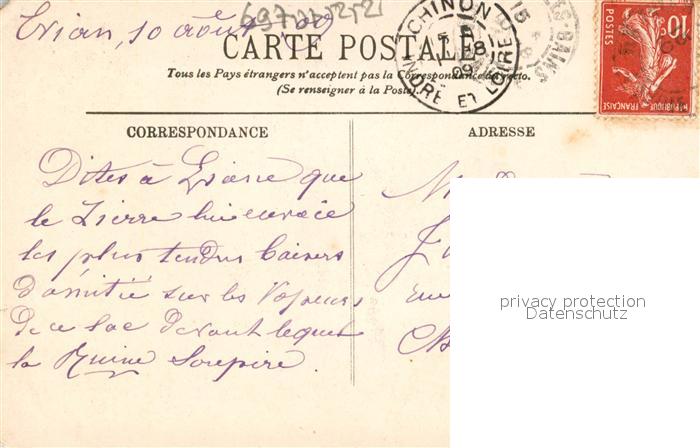 Evian, 10 août 09
69722521
CARTE POSTALE
Tous les Pays étrangers n'acceptent pas la Correspondance au recto.
(Se renseigner à la Poste).
CHINON
8
09
INDRE ET LOIRE
S-BAINS
POSTES 10
REPUBLIQUE FRANÇAISE
CORRESPONDANCE
ADRESSE
Dites à que
le Lierre lui envoie
les plus tendres baisers
d'amitié sur les Vapeurs
de ce Lac devant lequel
la Ruine Soupire.
M
privacy protection
Datenschutz